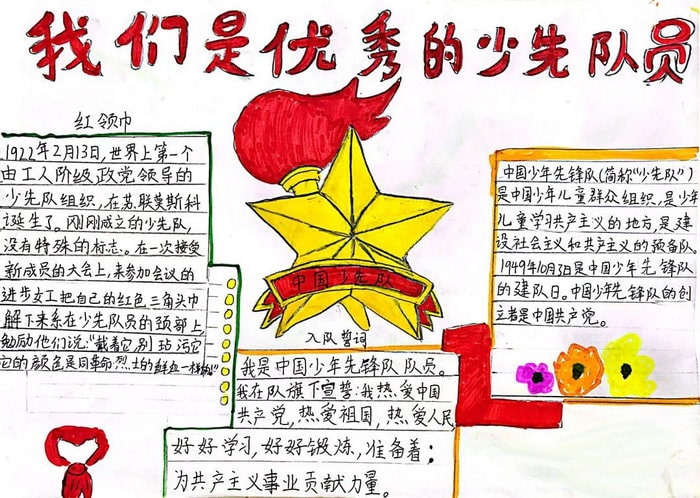 我们是优秀的少先队员
红领巾
1922年2月13日,世界上第一个
由工人阶级政党领导的
少先队组织,在苏联莫斯科
诞生了。刚刚成立的少先队,
没有特殊的标志。在一次接受
新成员的大会上,来参加会议的
进步女工把自己的红色三角头巾
解下来系在少先队员的颈部上,
勉励他们说:"戴着它,别玷污它
它的颜色是同革命烈士的鲜血一样的"
中国少先队
入队誓词
我是中国少年先锋队队员。
我在队旗下宣誓:我热爱中国
共产党,热爱祖国,热爱人民
好好学习,好好锻炼,准备着:
为共产主义事业贡献力量。
中国少年先锋队(简称"少先队")
是中国少年儿童群众组织,是少年
儿童学习共产主义的地方,是建
设社会主义和共产主义的预备队。
1949年10月13日是中国少年先锋队
的建队日。中国少年先锋队的创
立者是中国共产党。